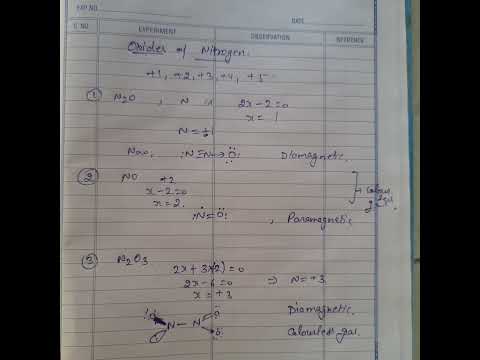 EXP. NO.
DATE
S. NO.
EXPERIMENT
OBSERVATION
REFERENCE
Oxides of Nitrogen.
+1, +2, +3, +4, +5
① N₂O , N 2x-2=0
x = 1
N = +1
N≡N→O: Diamagnetic.
② NO +2
x-2=0
x=2.
N=O: , Paramagnetic
③ N₂O₃
2x + 3x(-2) = 0 ⇒ N=+3
2x-6=0
x = +3
N — N Diamagnetic.
Colourless gas.